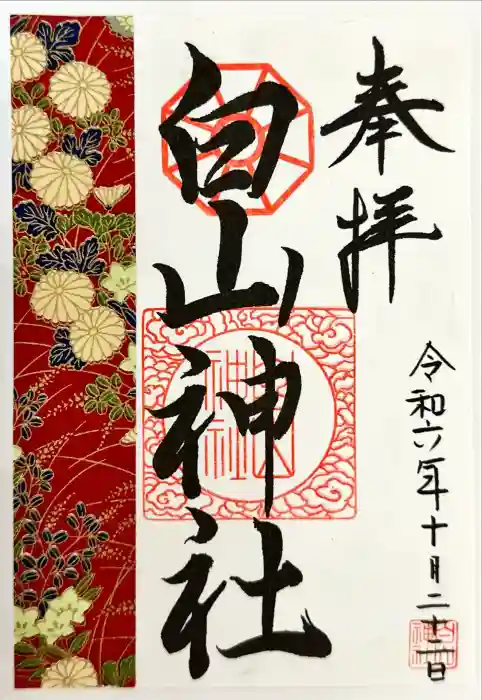 奉拝
白山神社
令和六年十月二十一日